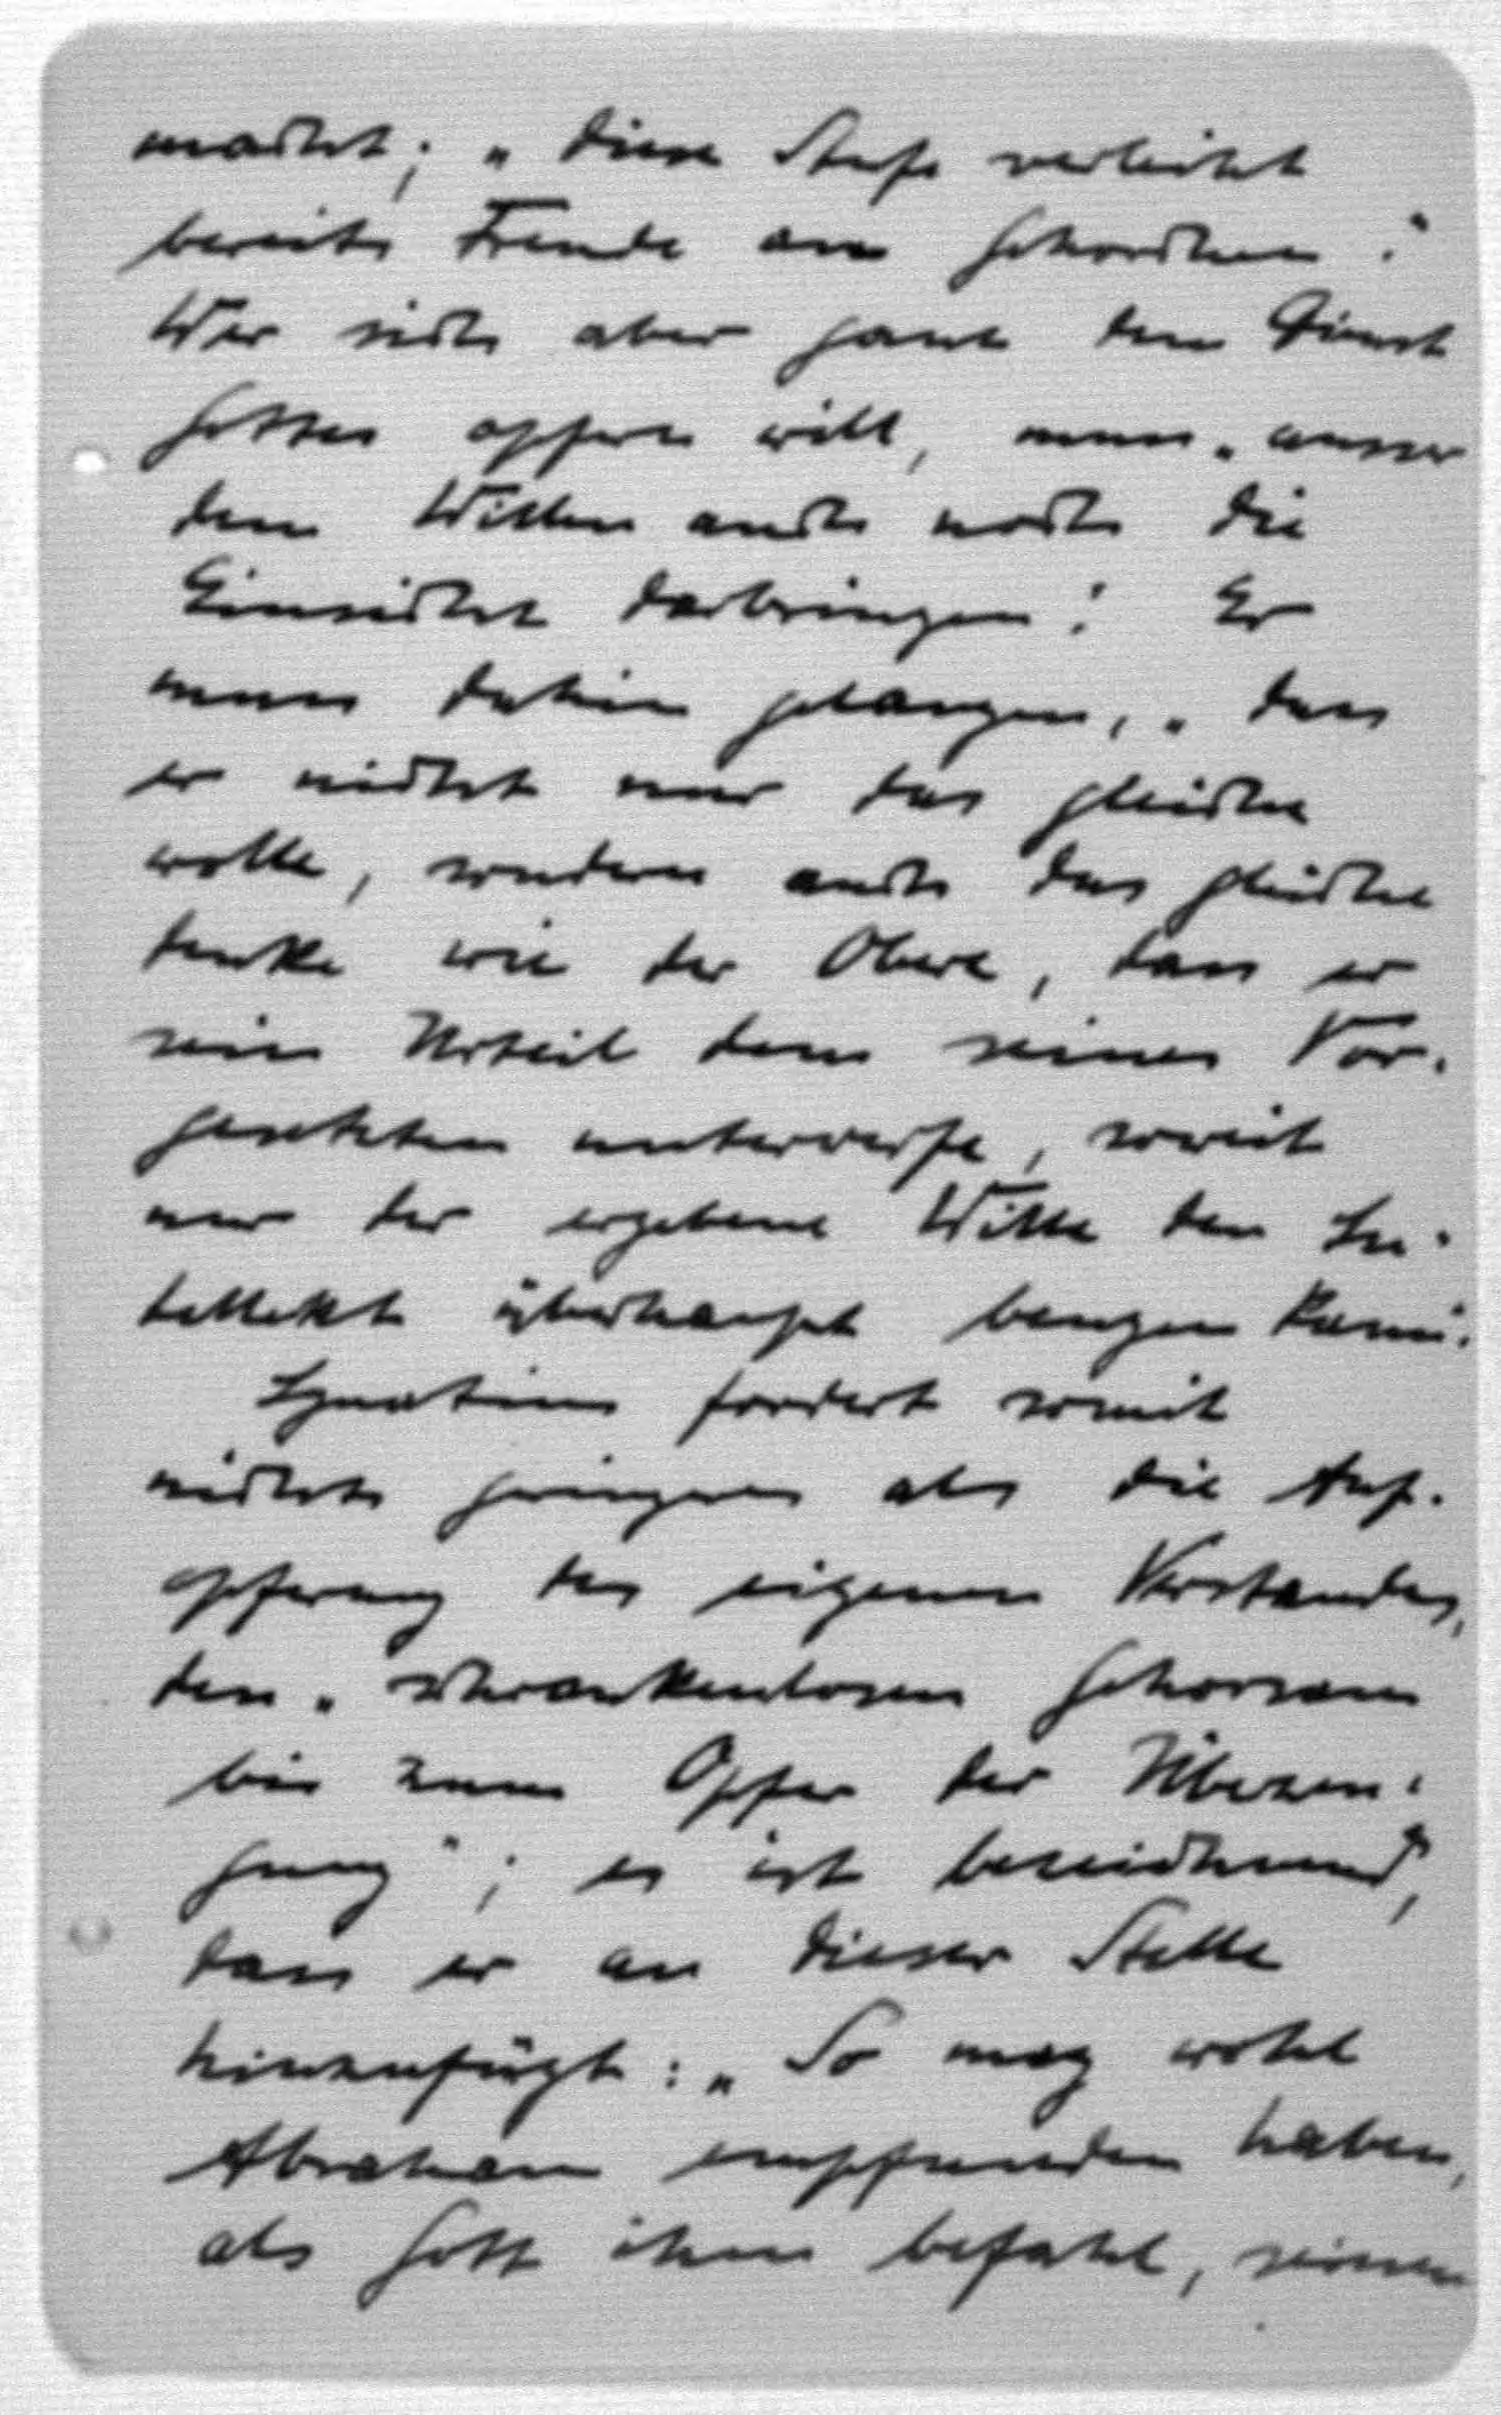 macht; „diese Stufe verleiht
bereits Freude am Gehorchen."
Wer sich aber ganz dem Dienst
Gottes opfern will, muss „ausser
dem Willen auch noch die
Einsicht darbringen." Er
muss dahin gelangen, „dass
er nicht nur das gleiche
wolle, sondern auch das gleiche
denke wie der Obere, dass er
sein Urteil dem seines Vor-
gesetzten unterwerfe, soweit
nur der ergebene Wille den In-
tellekt überhaupt beugen kann."
Ignatius fordert somit
nichts geringeres als die Auf-
opferung des eigenen Verstandes,
den „schrankenlosen Gehorsam
bis zum Opfer der Überzeu-
gung"; es ist bezeichnend,
dass er an dieser Stelle
hinzufügt: „So mag wohl
Abraham empfunden haben,
als Gott ihm befahl, seinen